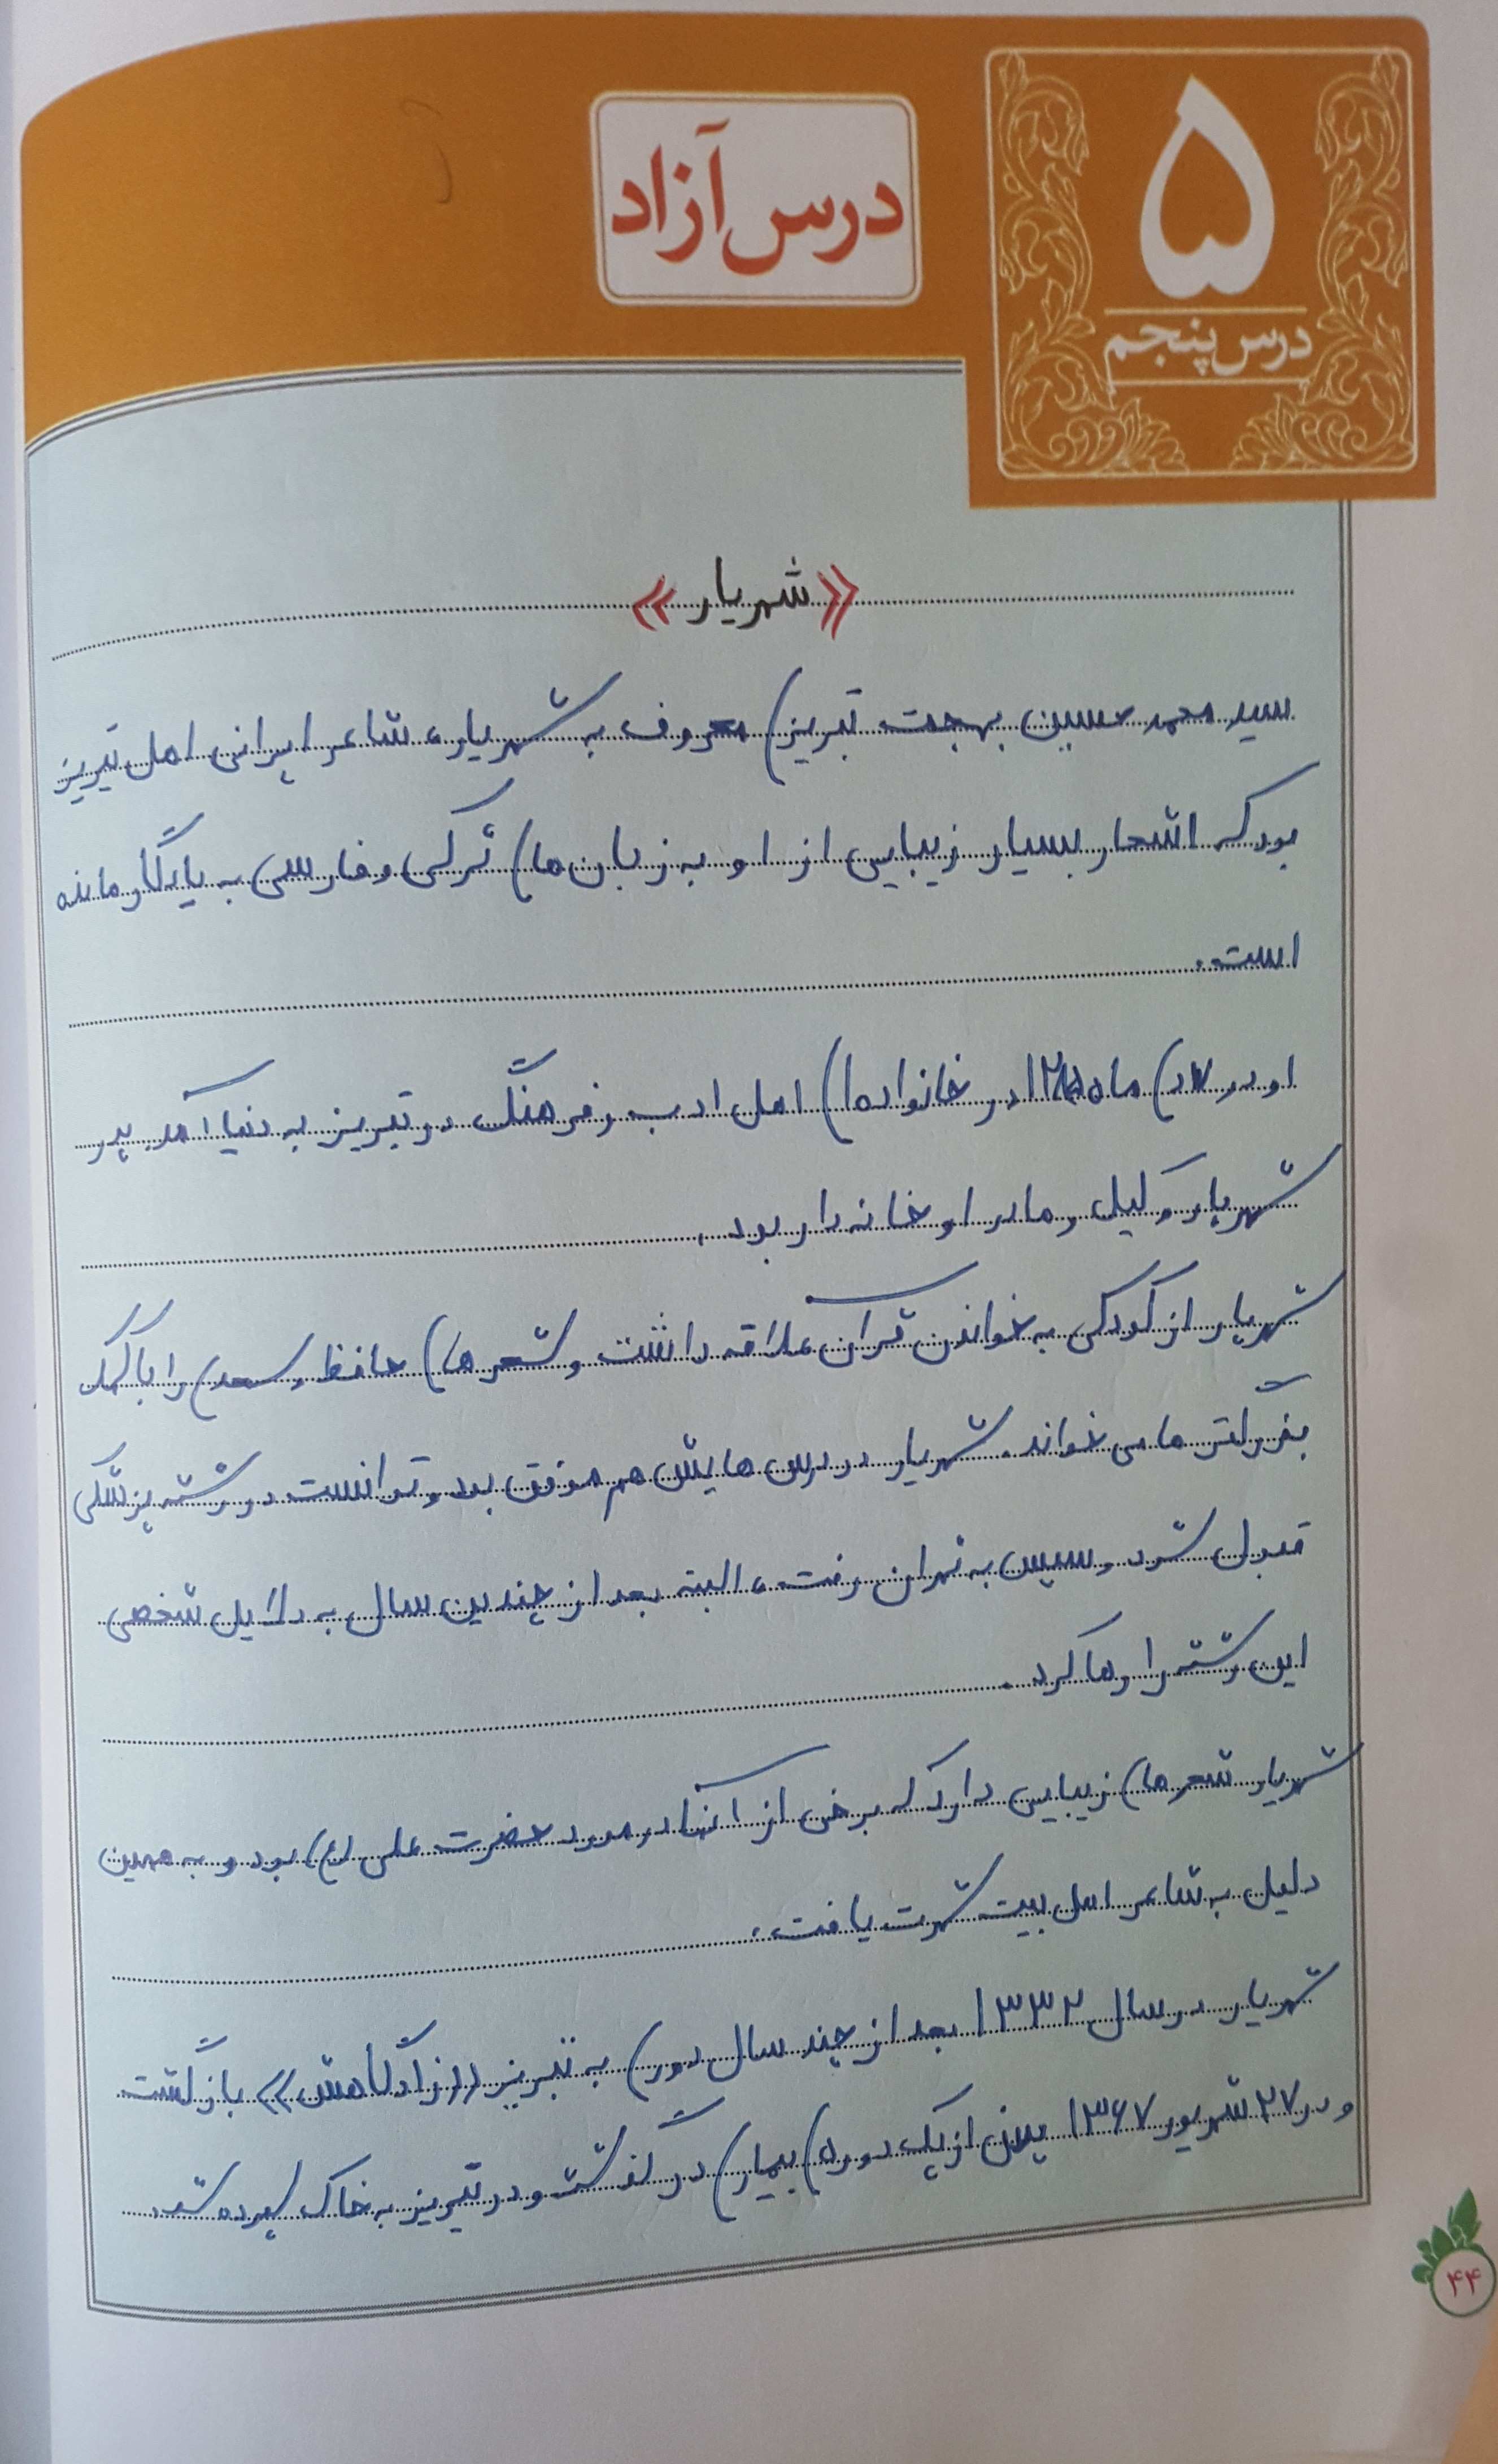 ۵
درس پنجم
درس آزاد
«شهریار»
سید محمد حسین بهجت تبریزی معروف به شهریار، شاعر ایرانی اهل تبریز
بود که اشعار بسیار زیبایی از او به زبان‌های ترکی و فارسی به یادگار مانده
است.
او در دی ماه ۱۲۸۵ در خانواده‌ای اهل ادب و فرهنگ در تبریز به دنیا آمد. پدر
شهریار وکیل و مادر او خانه‌دار بود.
شهریار از کودکی به خواندن قرآن علاقه داشت و شعرهای حافظ و سعدی را با کمک
بزرگتر ها می خواند. شهریار در درس هایش هم موفق بود و توانست در رشته پزشکی
قبول شود و سپس به تهران رفت، البته بعد از چندین سال به دلایل شخصی
این رشته را رها کرد.
شهریار شعرهای زیبایی دارد که برخی از آنها در مورد حضرت علی (ع) بود و به همین
دلیل به شاعر اهل بیت شهرت یافت.
شهریار در سال ۱۳۳۲ بعد از چند سال دوری به تبریز «زادگاهش» بازگشت
و در ۲۷ شهریور ۱۳۶۷ پس از یک دوره‌ی بیماری درگذشت و در تبریز به خاک سپرده شد.
۴۴